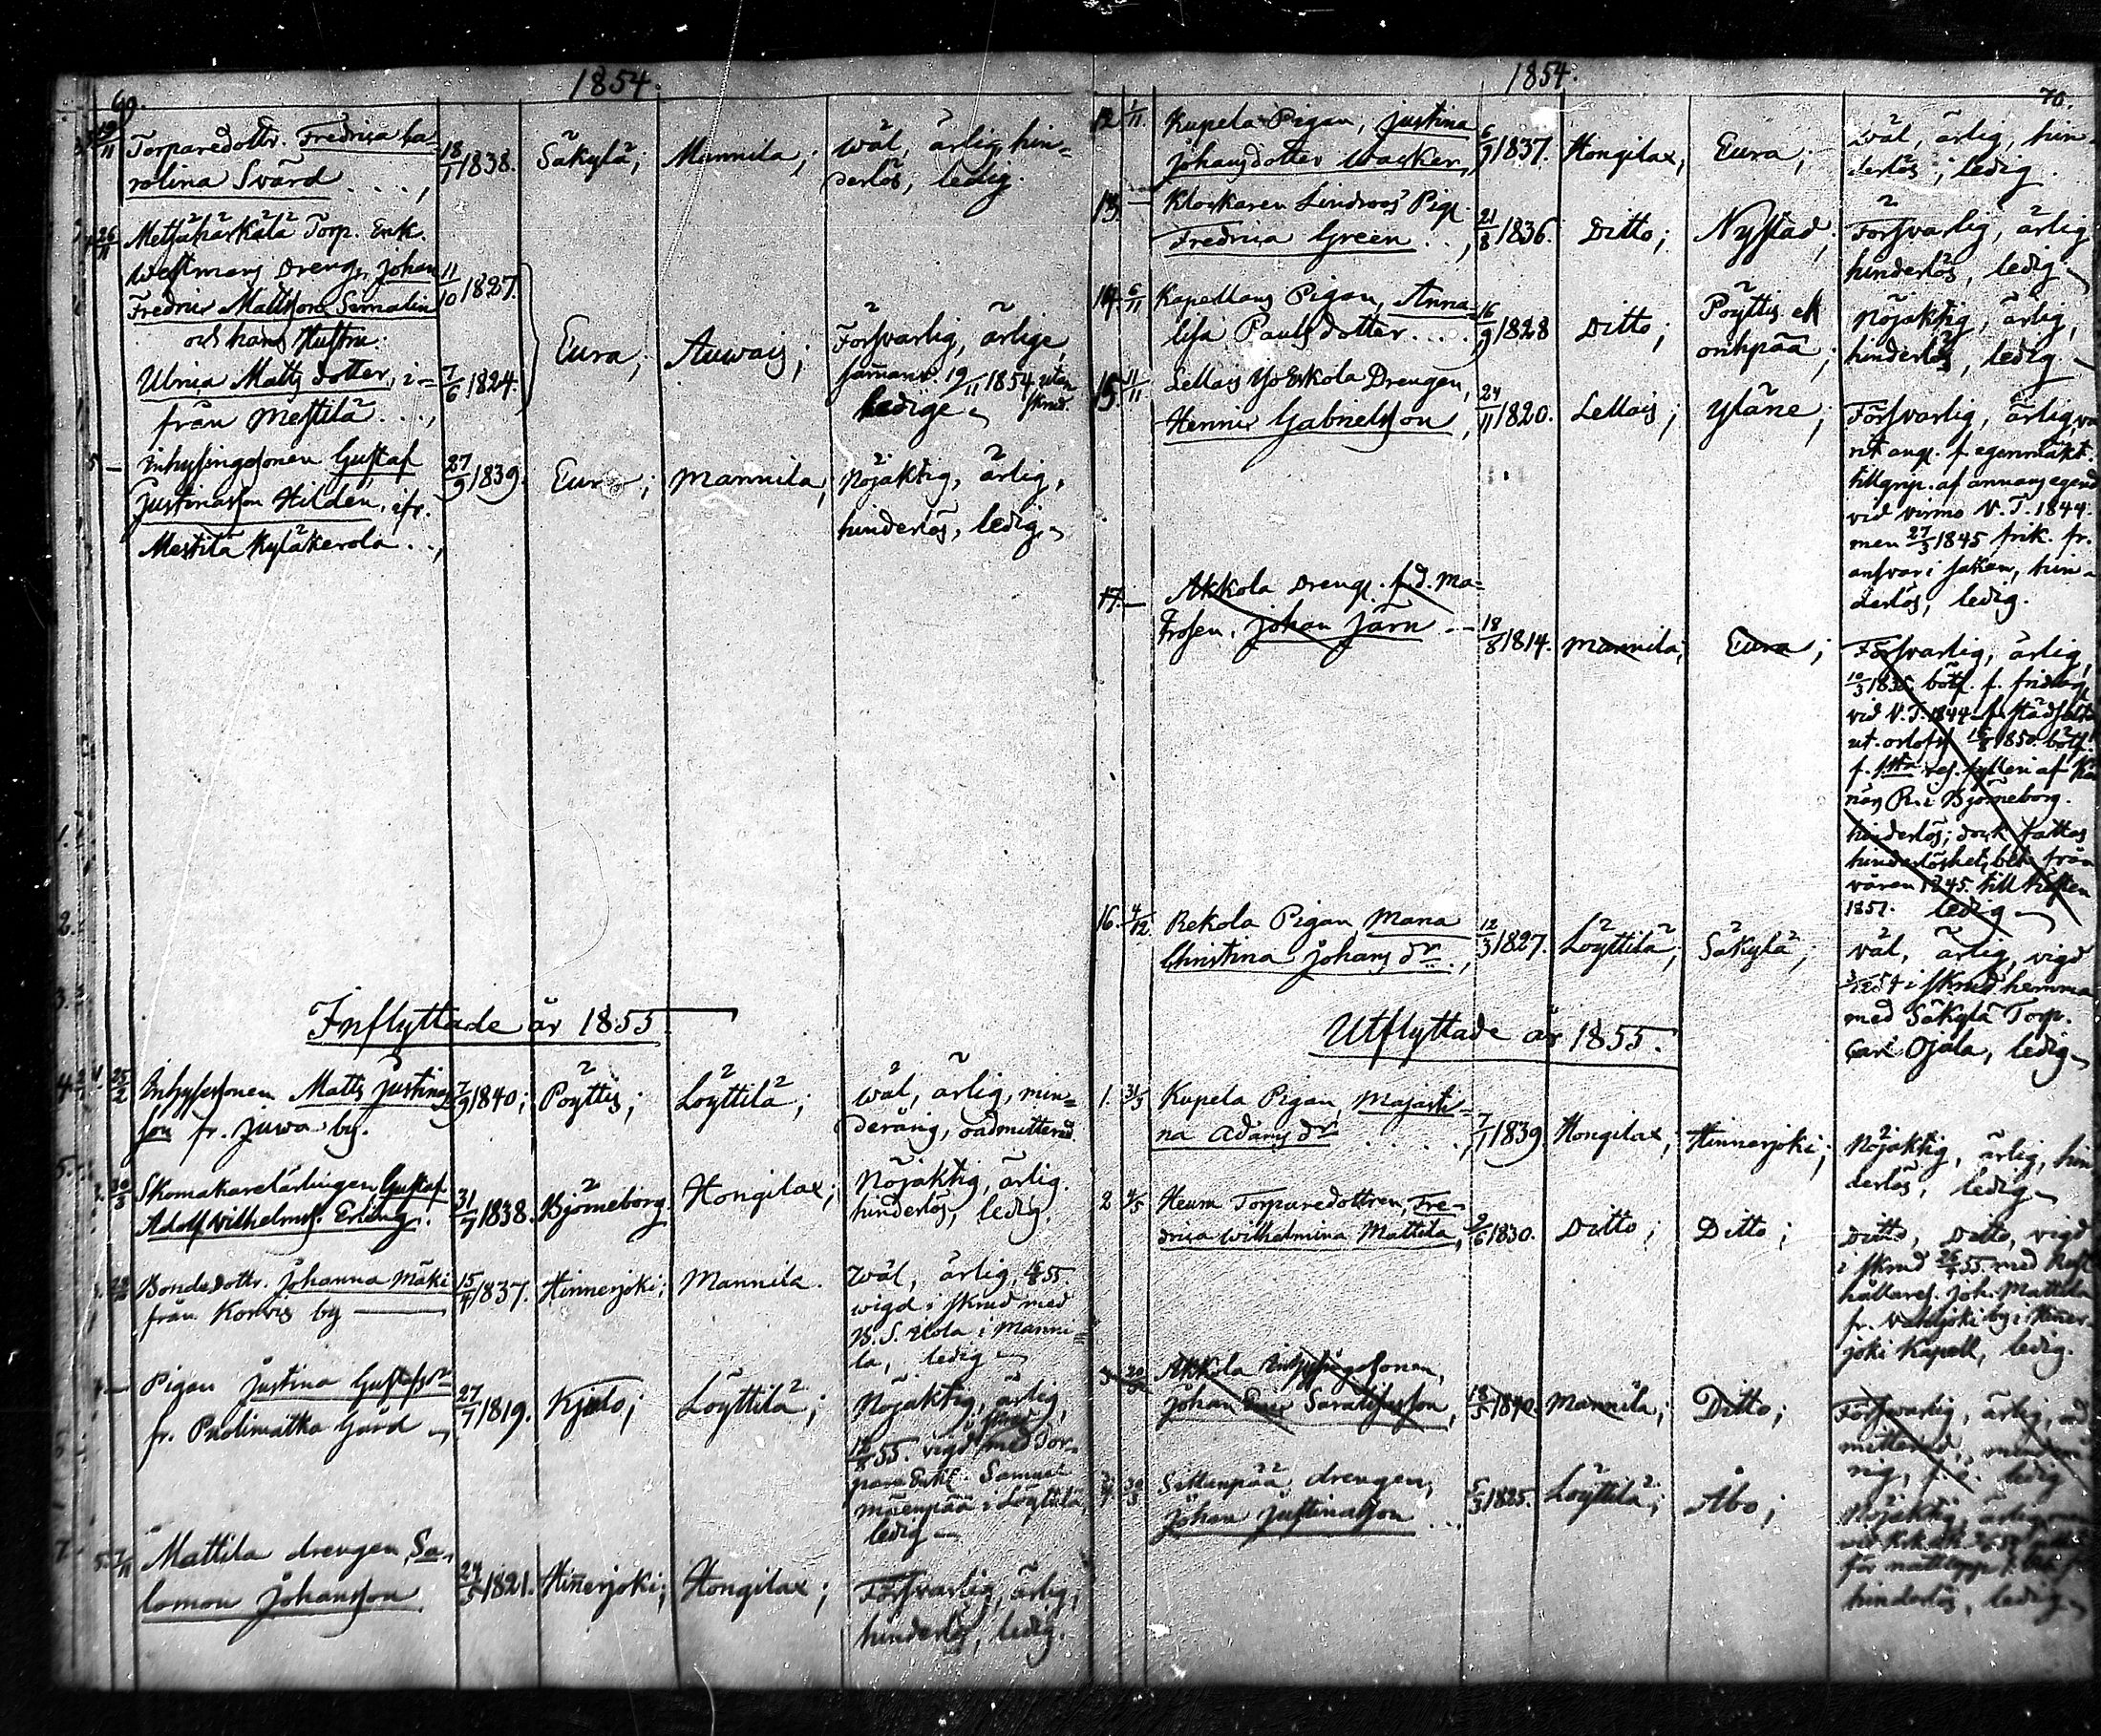 69.
1854.
19/11 Torparedottr. Fredrica Ca=
rolina Svärd . . . , 18/1 1838. Säkylä; Mannila; wäl, ärlig, hin=
derlös, ledig.
26/11 Metsähärkälä Torp. Erik
Westmans Dreng, Johan
Fredric Mattsson Sernalin 11/10 1827.
och hans Hustru
Ulrica Matts dotter, i= 7/6 1824. Eura; Auwais; Försvarlig, ärlige,
från Mestilä . . , samanv. 19/11 1854 utan
ledige skrud.
5 — Inhysingssonen Gustaf
Justinasson Hilden, ifr. 27/9 1839. Eura; Mannila; Nöjaktig, ärlig,
Mestilä Kyläkerola . . , hinderlös, ledig
Inflyttade år 1855
25/2 Inhysessonen Matts Justinas=
son fr. Juwa by. 7/9 1840; Pöyttis; Löyttilä; wäl, ärlig, min=
derårig, oadmitterad.
30/3 Skomakarelärlingen Gustaf
Adolf Wilhelmss. Erling. 31/7 1838. Björneborg Hongilax; Nöjaktig, ärlig.
hinderlös, ledig.
Bondedottr. Johanna Mäki
från Korvis by — 15/4 1837. Hinnerjoki; Mannila. Wäl, ärlig, 55.
wigd i skrud med
B. S. Uola i Manni=
la, ledig
Pigan Justina Gustafsdr
fr. Puolimatka Gård 27/7 1819. Kjulo; Löyttilä; Nöjaktig, ärlig,
i skrud
12/8 55. vigd med Tor=
pare Enkl. Samuel
Mäenpää i Löyttilä,
ledig
5. 7/11 Mattila drengen, Sa=
lomon Johansson 24/5 1821. Hinnerjoki; Hongilax; Försvarlig, ärlig,
hinderlös, ledig.
1854.
70.
12 1/11. Kupela Pigan, Justina
Johansdotter Wacker, 6/9 1837. Hongilax; Eura; wäl, ärlig, hin=
derlös; ledig.
13. — Klockaren Lindroos Pig.
Fredrica Green . . , 21/8 1836. Ditto; Nystad; Försvarlig, ärlig
hinderlös, ledig
14 6/11 Kapellans Pigan, Anna
Lisa Pauls dotter . . . . 16/9 1828 Ditto; Pöyttis ell
Nöjaktig, ärlig,
hinderlös, ledig.
15. 11/11 Lellais Yo Eskola Drengen,
Henric Gabrielsson, 24/11 1820. Lellais; Yläne; Försvarlig, ärlig, va
rit angl. f. egenmäkt.
tillgrip. af annans egend
vid virmo V. T. 1844.
men 27/3 1845 frik. fr.
ansvar i saken, hin=
derlös, ledig.
17. — Akkola Dreng. f.d. Ma=
trosen, Johan Järn — 18/8 1814. Mannila; Eura; Försvarlig, ärlig,
10/3 1835. böt. f.
vid V. T. 1844
1850. böt.
f. af
R. i Björneborg.
hinderlös; dock fattas
hinderlöshets från
våren 1845. till hösten
1851. ledig
16. 4/12 Rekola Pigan Maria
Christina Johans dr . . , 12/3 1827. Löyttilä; Säkylä; wäl, ärlig, vigd
54 i skrud hemma
med Säkylä Torp.
Carl Ojala, ledig
Utflyttade år 1855.
1. 31/3 Kupela Pigan, Majasti=
na Adams dr . . . . , 7/1 1839. Hongilax; Hinnerjoki; Nöjaktig, ärlig, hin
derlös, ledig
2 4/5 Heura Torparedottren, Fre=
drica Wilhelmina Mattila, 9/6 1830. Ditto; Ditto; Ditto, Ditto, vigd
i skrud 55. med Rust
hållares. Joh. Mattila
fr. by i Hiner=
joki Kapell, ledig.
3 Akkola Inhysingssonen,
Johan Eric Saralisasson, 18/5 1840 Mannila; Ditto; Försvarlig, ärlig, oad
mitterad, minderå
rig, ledig
4 30/3 Sillanpää, drengen,
Johan Justinasson . . . 5/3 1825. Löyttilä; Åbo; Nöjaktig, ärlig
hinderlös, ledig